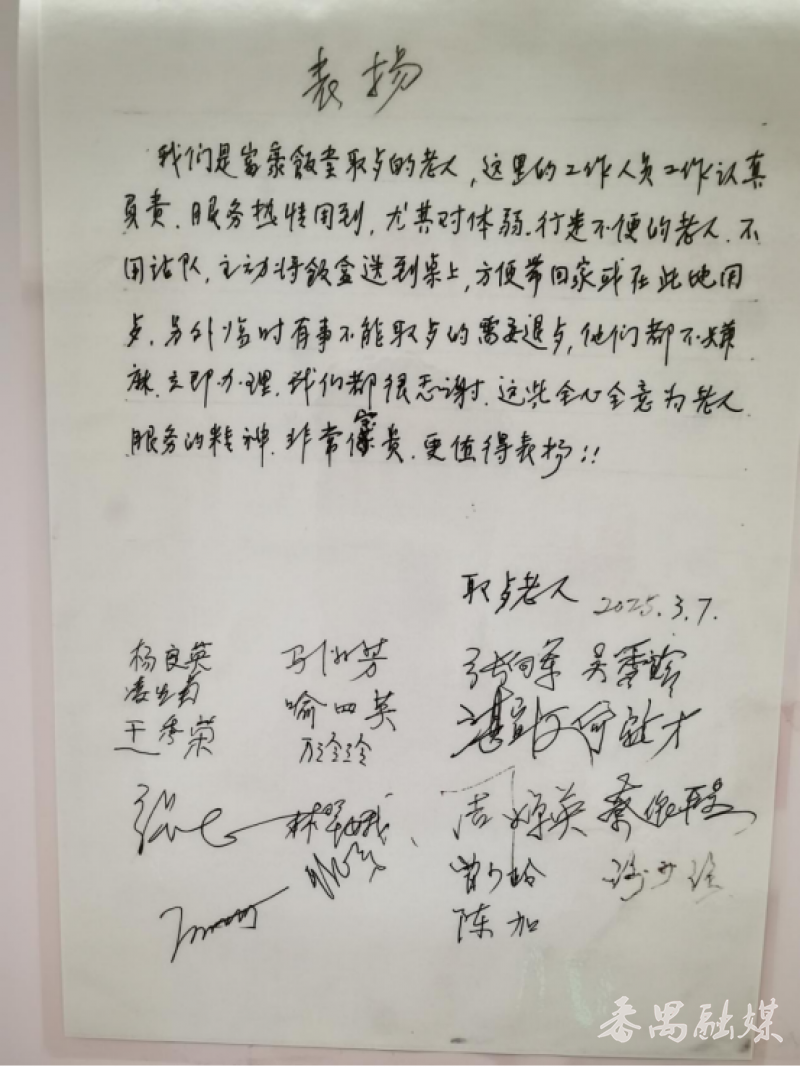 表扬
我们是富豪飯堂取歺的老人,这里的工作人员工作认真
负责.服务热情周到,尤其对体弱.行走不便的老人.不
用站队,主动将飯盒送到桌上,方便带回家或在此地用
歺.另外临时有事不能取歺的需要退歺,他们都不嫌
麻.立即办理.我们都很感谢.这些全心全意为老人
服务的精神.非常宝贵.更值得表扬!!
取歺老人 2025.3.7.
杨良英 芳 吴
喻四英
王秀荣 万玲玲 何 才
张 林 周 英 蔡
曾 玲
陈加
番禺融媒